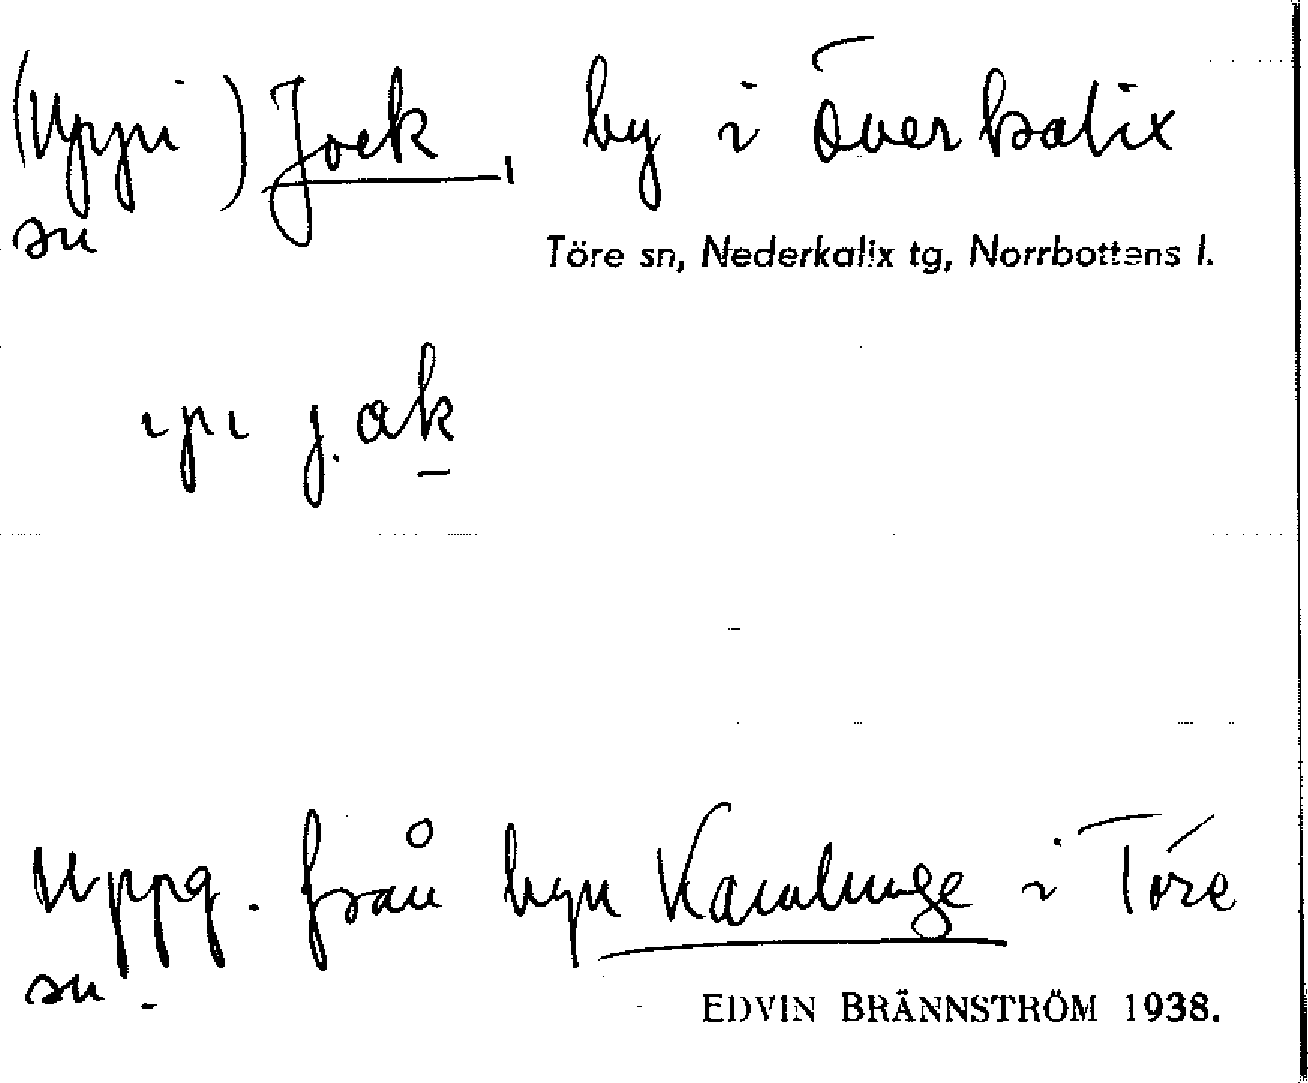 (Uppi) Jock, by i Överkalix
sn
Töre sn, Nederkalix tg, Norrbottens l.
ɩpɩ j.ɑk
Uppg. från byn Kamlunge i Töre
sn.
EDVIN BRÄNNSTRÖM 1938.